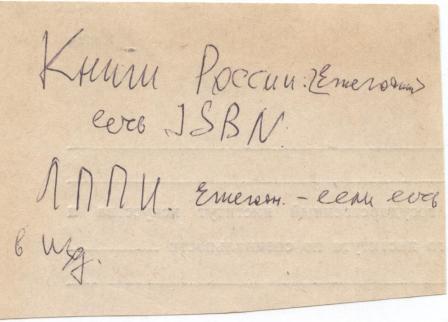 Книги России. (Ежегодник)
есть ISBN.
ЛППИ. Ежегодн. - если есть
в изд.